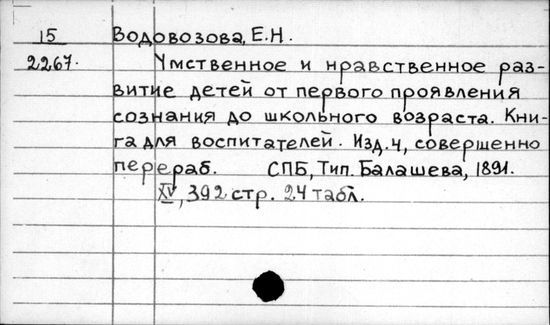 15 Водовозова, Е.Н.
2267. Умственное и нравственное раз-
витие детей от первого проявления
сознания до школьного возраста. Кни-
га для воспитателей. Изд. 4, совершенно
перераб. СПБ, Тип. Балашева, 1891.
XV, 392 стр. 24 табл.